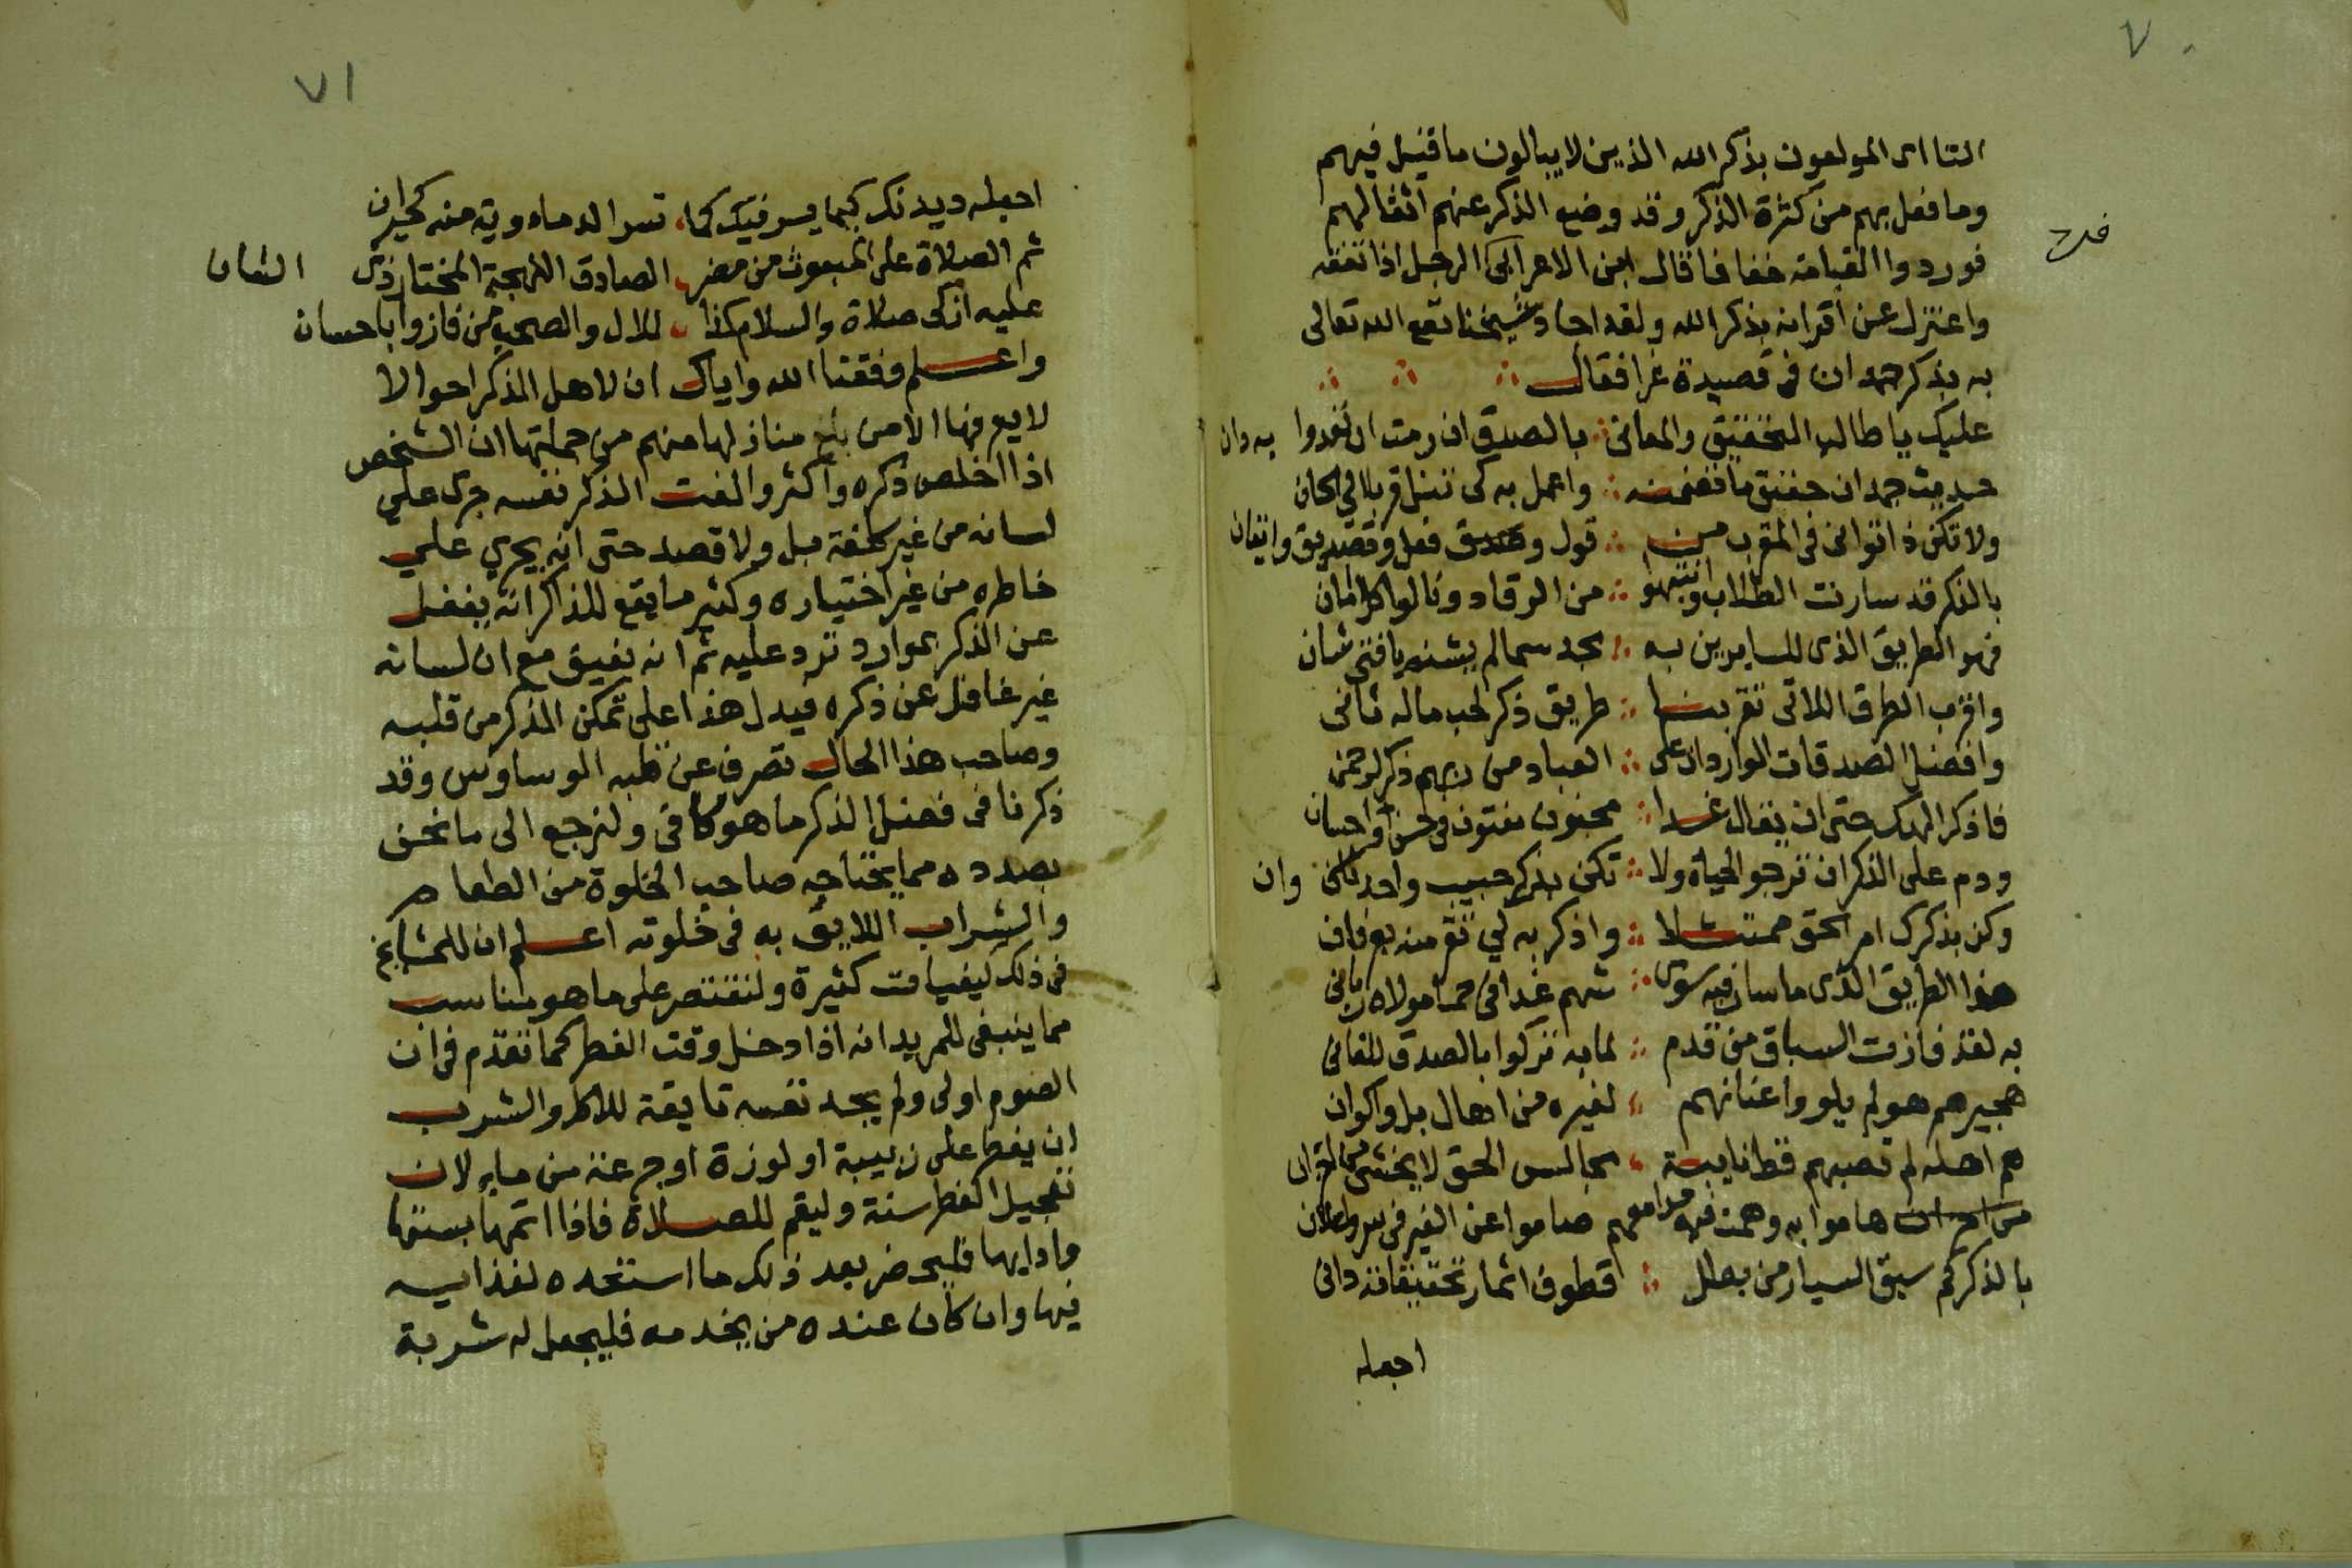 ٧٠
التاای المولعون بذكر الله الذين لا يبالون ما قيل فيهم
وما فعل بهم من كثرة الذكر وقد وضع الذكر عنهم اثقالهم
فوردوا القيامة خفافا قال ابن الاعرابى الرجل اذا تفقه
واعتزل عن أقرانه بذكر الله ولقد اجاد شيخنا نفع الله تعالى
به بذكر جمدان فى قصيدة غرا فقال
عليك يا طالب التحقيق والمعانى بالصدق ان رمت ان تغدوا به دان
حديث جمدان حقق ما تضمنه واعمل به كى تنل قربا الى الحان
ولا تكن ذا توانى فى المقرب من قول وصدق فعل وتصديق وايقان
بالذكر قد سارت الطلاب وانتبهوا من الرقاد ونالوا كل
فهو الطريق الذى للسايرين به بجد سما لم يشنه يا فتى شان
واقرب الطرق اللاتى تقربنا طريق ذكر لحب ماله ثانى
وافضل الصدقات الواردات على العباد من ربهم ذكر لرحمن
فاذكر الهك حتى ان يقال غدا مجنون مفتون فى حسن واحسان
ودم على الذكر ان ترجو الحياة ولا تكن بذكر حبيب واحد وان
وكن بذكرك امر الحق ممتثلا واذكر به لي تفز منه بعرفان
هذا الطريق الذى ما سار فيه سوى شهم غدا فى حما مولاه ربانى
به لقد فازت السباق من قدم لما به تركوا بالصدق للفانى
هجيرهم هو لم يلووا عنانهم لغيره من اهال بل واكوان
هم اهله لم تصبهم قط نايبة مجالس الحق لا يخشى من احزان
هاموا به وهمت فيه مدامعهم صاموا عن الغير فى سر واعلان
بالذكر كم سبق السيار من بطل قطوف اثمار تحقيقاته دانى
اجعله
٧١
اجعله ديدنك كيما يسر فيك كما تسر الدماء
ثم الصلاة على المبعوث من مضر الصادق اللهجة المختار ذى الشان
عليه ازكى صلاة والسلام كذا للال والصحب من فازوا باحسان
واعلم وفقنا الله واياك ان لاهل الذكر احوالا
لا يعرفها الا من بلغ منازلها منهم من جملتها ان الشخص
اذا اخلص ذكره واكثر والفت الذكر نفسه جرى على
لسانه من غير كلفة بل ولا قصد حتى انه يجري على
خاطره من غير اختياره وكثير ما يقع للذاكر انه يغفل
عن الذكر بموارد ترد عليه ثم انه يفيق مع ان لسانه
غير غافل عن ذكره فيدل هذا على تمكن الذكر من قلبه
وصاحب هذا الحال تصرف عن قلبه الوساوس وقد
ذكرنا فى فضل الذكر ما هو كافى ولنرجع الى ما نحن
بصدده مما يحتاجه صاحب الخلوة من الطعام
والشراب اللايق به فى خلوته اعلم ان للمشايخ
فى ذلك كيفيات كثيرة ولنقتصر على ما هو مناسب
مما ينبغى للمريد انه اذا دخل وقت الفطر كما تقدم فى ان
الصوم اولى ولم يجد نفسه تايقة للاكل والشرب
ان يفطر على زبيبة او لوزة او جرعة من ماء لان
تعجيل الفطر سنة وليقم للصلاة فاذا اتمها بسنتها
وادابها فليحضر بعد ذلك ما استعده لغذايه
فيها وان كان عنده من يخدمه فليجعل له شربة